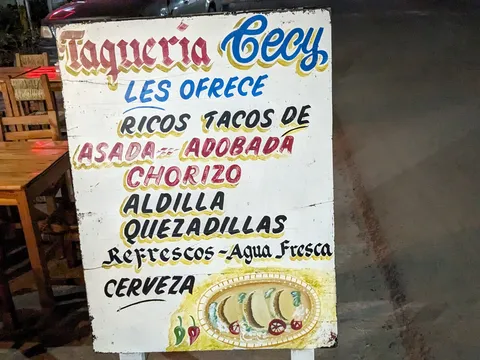 Taqueria Cecy
LES OFRECE
RICOS TACOS DE
ASADA DE ADOBADA
CHORIZO
ALDILLA
QUEZADILLAS
Refrescos - Agua Fresca
CERVEZA